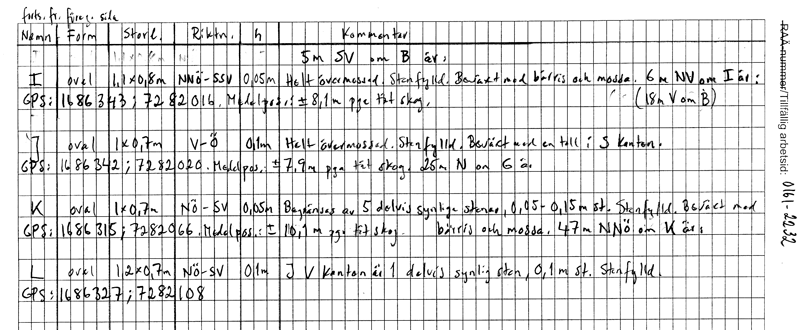 forts. fr. föreg. sida
Namn Form Storl. Riktn. h Kommentar
5m SV om B är:
I oval 1,1x0,8m NNÖ-SSV 0,05m Helt övermossad. Stenfylld. Beväxt med bärris och mossa. 6m NV om I är:
GPS: 1686343; 7282016. Medelpos.: ±8,1m pga tät skog. (18m V om B)
J oval 1x0,7m V-Ö 0,1m Helt övermossad. Stenfylld. Beväxt med en tall i S kanten.
GPS: 1686342; 7282020. Medelpos.: ±7,9m pga tät skog. 25m N om G är
K oval 1x0,7m NÖ-SV 0,05m Begränsas av 5 delvis synliga stenar, 0,05-0,15m st. Stenfylld. Beväxt med
GPS: 1686315; 7282066. Medelpos.: ±10,1m pga tät skog. bärris och mossa. 47m NNÖ om K är:
L oval 1,2x0,7m NÖ-SV 0,1m I V kanten är 1 delvis synlig sten, 0,1m st. Stenfylld.
GPS: 1686327; 7282108
RAÄ-nummer/Tillfällig arbetsid: 0161-2232